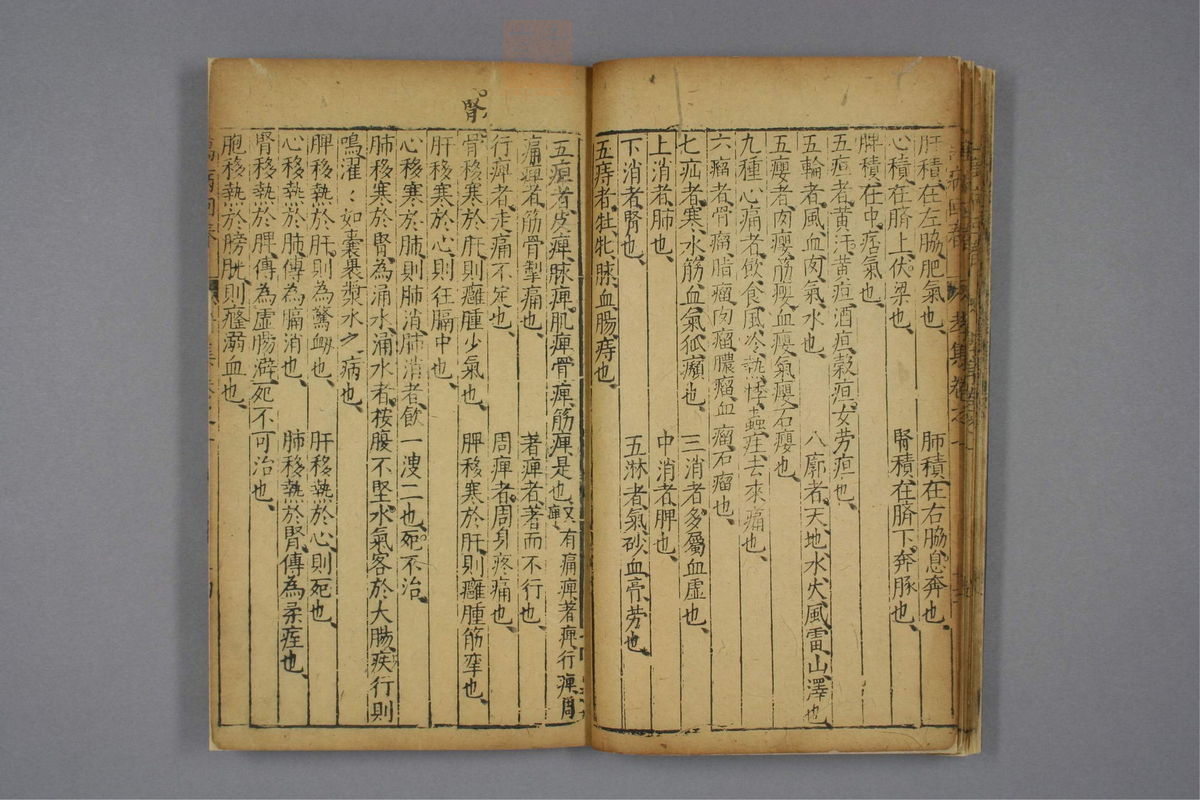 肝積、在左脇、肥氣也、　肺積、在右脇、息奔也、
心積、在臍上、伏梁也、　腎積、在臍下、奔豚也、
脾積、在中、痞氣也、
五疸者、黃汗、黃疸、酒疸、穀疸、女勞疸也、
五輪者、風血肉氣水也、　八廓者、天地水火風雷山澤也、
五癭者、肉癭、筋癭、血癭、氣癭、石癭也、
九種心痛者、飲食風冷熱悸蟲疰去來痛也、
六瘤者、骨瘤、脂瘤、肉瘤、膿瘤、血瘤、石瘤也、
七疝者、寒水筋血氣狐癩也、　三消者、多屬血虛也、
上消者、肺也、　中消者、脾也、
下消者、腎也、　五淋者、氣砂血膏勞也、
五痔者、牡牝脉血腸痔也、
五疸者、皮痺、脉痺、肌痺、骨痺、筋痺是也、又有痛痺、著痺、行痺、周痺
痛痺者、筋骨掣痛也、　著痺者、著而不行也、
行痺者、走痛不定也、　周痺者、周身疼痛也、
腎
骨移寒於肝、則癰腫少氣也、　脾移寒於肝、則癰腫筋攣也、
肝移寒於心、則狂膈中也、
心移寒於肺、則肺消、肺消者、飲一溲二也、死不治、
肺移寒於腎、為涌水、涌水者、按腹不堅、水氣客於大腸、疾行則
鳴濯濯如囊裹漿水之病也、
脾移熱於肝、則為驚衂也、　肝移熱於心、則死也、
心移熱於肺、傳為膈消也、　肺移熱於腎、傳為柔痓也、
腎移熱於脾、傳為虛腸澼、死不可治也、
胞移熱於膀胱、則癃溺血也、